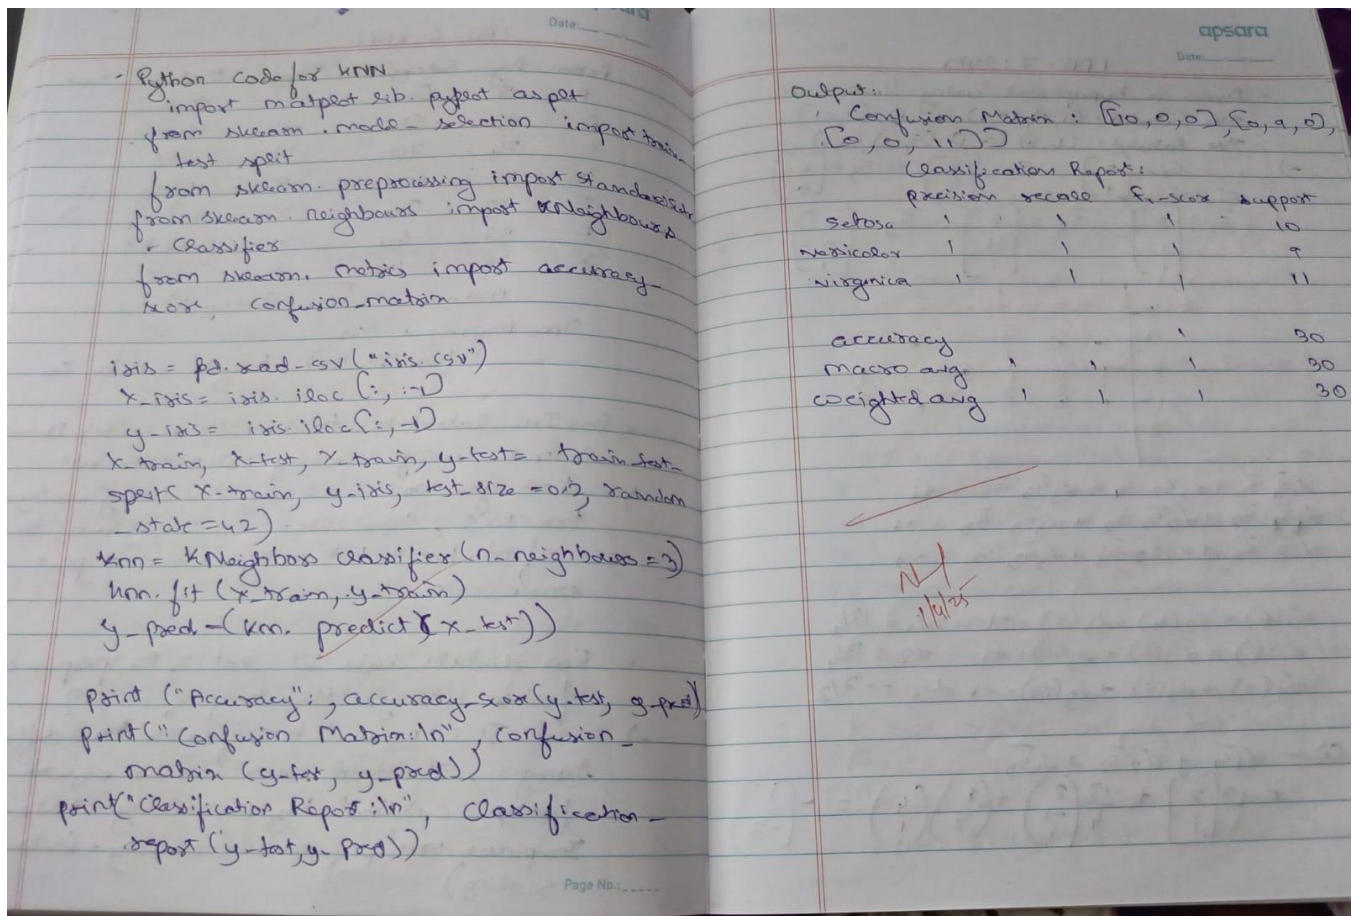 Date:
- Python Code for KNN
import matplotlib.pyplot as plt
from sklearn.model_selection import train_
test split
from sklearn.preprocessing import StandardScaler
from sklearn.neighbours import KNeighbours
Classifier
from sklearn.metrics import accuracy_
score, confusion_matrix
iris = pd.read_csv("iris.csv")
X_iris = iris.iloc[:, :-1]
y_iris = iris.iloc[:, -1]
X_train, X_test, Y_train, y_test = train_test_
split(X_train, y_iris, test_size = 0.2, random
_state = 42)
knn = KNeighbors classifier(n_neighbours = 3)
knn.fit (X_train, y_train)
y_pred = (knn. predict (x_test))
print ("Accuracy": , accuracy_score(y_test, y_pred)
print(" Confusion Matrix:\n", confusion_
matrix (y_test, y_pred))
print("Classification Report:\n", Classification_
report (y_test, y_pred))
Page No.:
apsara
Date:
Output:
Confusion Matrix : [[10, 0, 0], [0, 9, 0],
[0, 0, 11]]
Classification Report:
precision recall f1-score support
setosa 1 1 1 10
versicolor 1 1 1 9
virginica 1 1 1 11
accuracy 1 30
macro avg 1 1 1 30
weighted avg 1 1 1 30
1/4/25